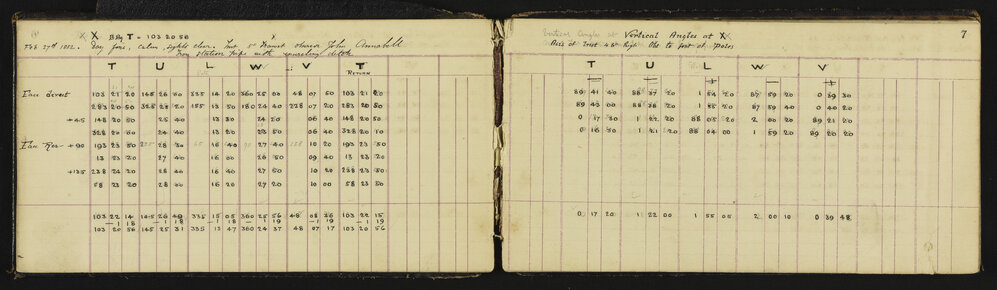 X Bdg T = 103 20 56
Day fine, calm, sights clear. Inst 5" Transit observer John Annabell
Iron Station Pegs with
T U L W V T
RETURN
Face direct 103 21 20 145 26 00 335 14 20 360 25 00 48 07 50 103 21 20
283 20 50 325 25 20 155 13 50 180 24 40 228 07 20 283 20 50
+45 148 20 50 25 40 13 30 24 50 06 40 148 20 50
328 20 00 24 40 13 20 23 50 06 40 328 20 10
Face Rev + 90 193 23 50 28 30 16 40 27 40 10 20 193 23 50
13 23 20 27 40 16 00 26 50 09 40 13 23 20
+135 238 24 20 28 40 16 40 27 50 10 20 238 23 50
58 23 20 28 00 16 20 27 20 10 00 58 23 50
103 22 14 145 26 49 335 15 05 360 25 56 48 08 36 103 22 15
— 1 18 — 1 18 — 1 18 — 1 19 — 1 19 — 1 19
103 20 56 145 25 31 335 13 47 360 24 37 48 07 17 103 20 56
Vertical Angles at Vertical Angles at X 7
Axis of Inst 4.6 ft high Obs to foot of Poles
T U L W V
89 41 40 88 37 20 1 54 20 87 59 20 0 39 30
89 43 00 88 38 20 1 55 20 87 59 40 0 40 20
0 17 30 1 22 20 88 05 20 2 00 20 89 21 20
0 16 30 1 21 20 88 04 00 1 59 20 89 20 20
0 17 20 1 22 00 1 55 05 2 00 10 0 39 48